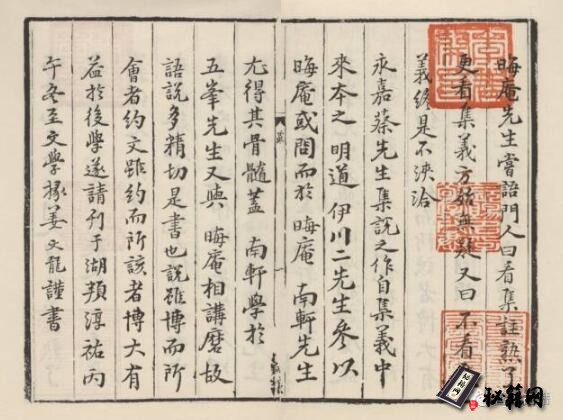 晦庵先生嘗語門人曰看集註熟了
更看集義方始無疑又曰不看
義終是不浹洽
永嘉蔡先生集說之作自集義中
來夲之 明道 伊川二先生參以
晦庵或問而於 晦庵 南軒先生
尤得其骨髓蓋 南軒學於
五峯先生又與 晦庵相講磨故
語說多精切是書也說雖博而所
會者約文雖約而所該者博大有
益於後學遂請刊于湖頖淳祐丙
午冬至文學掾姜文龍謹書
秘籍网